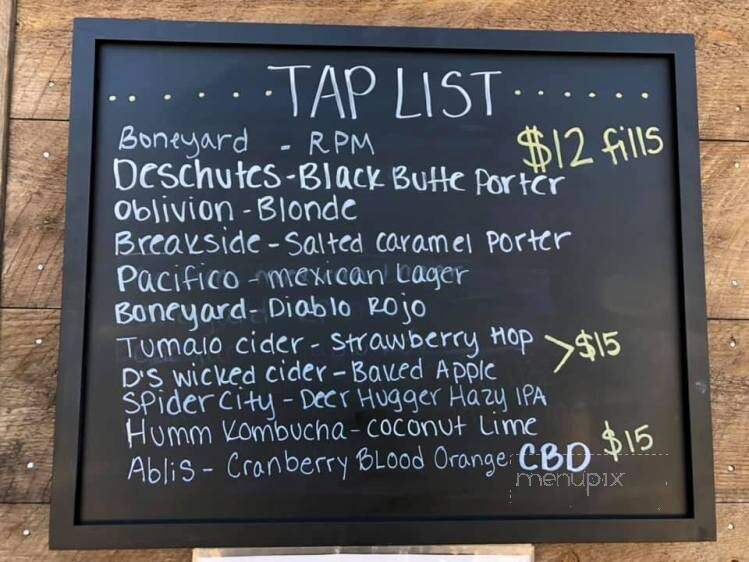 TAP LIST
Boneyard - RPM $12 fills
Deschutes - Black Butte Porter
Oblivion - Blonde
Breakside - Salted Caramel Porter
Pacifico - mexican Lager
Boneyard - Diablo Rojo
Tumalo cider - Strawberry Hop >$15
D's wicked cider - Baked Apple
Spider City - Deer Hugger Hazy IPA
Humm Kombucha - coconut Lime
Ablis - Cranberry Blood Orange CBD $15
menupix